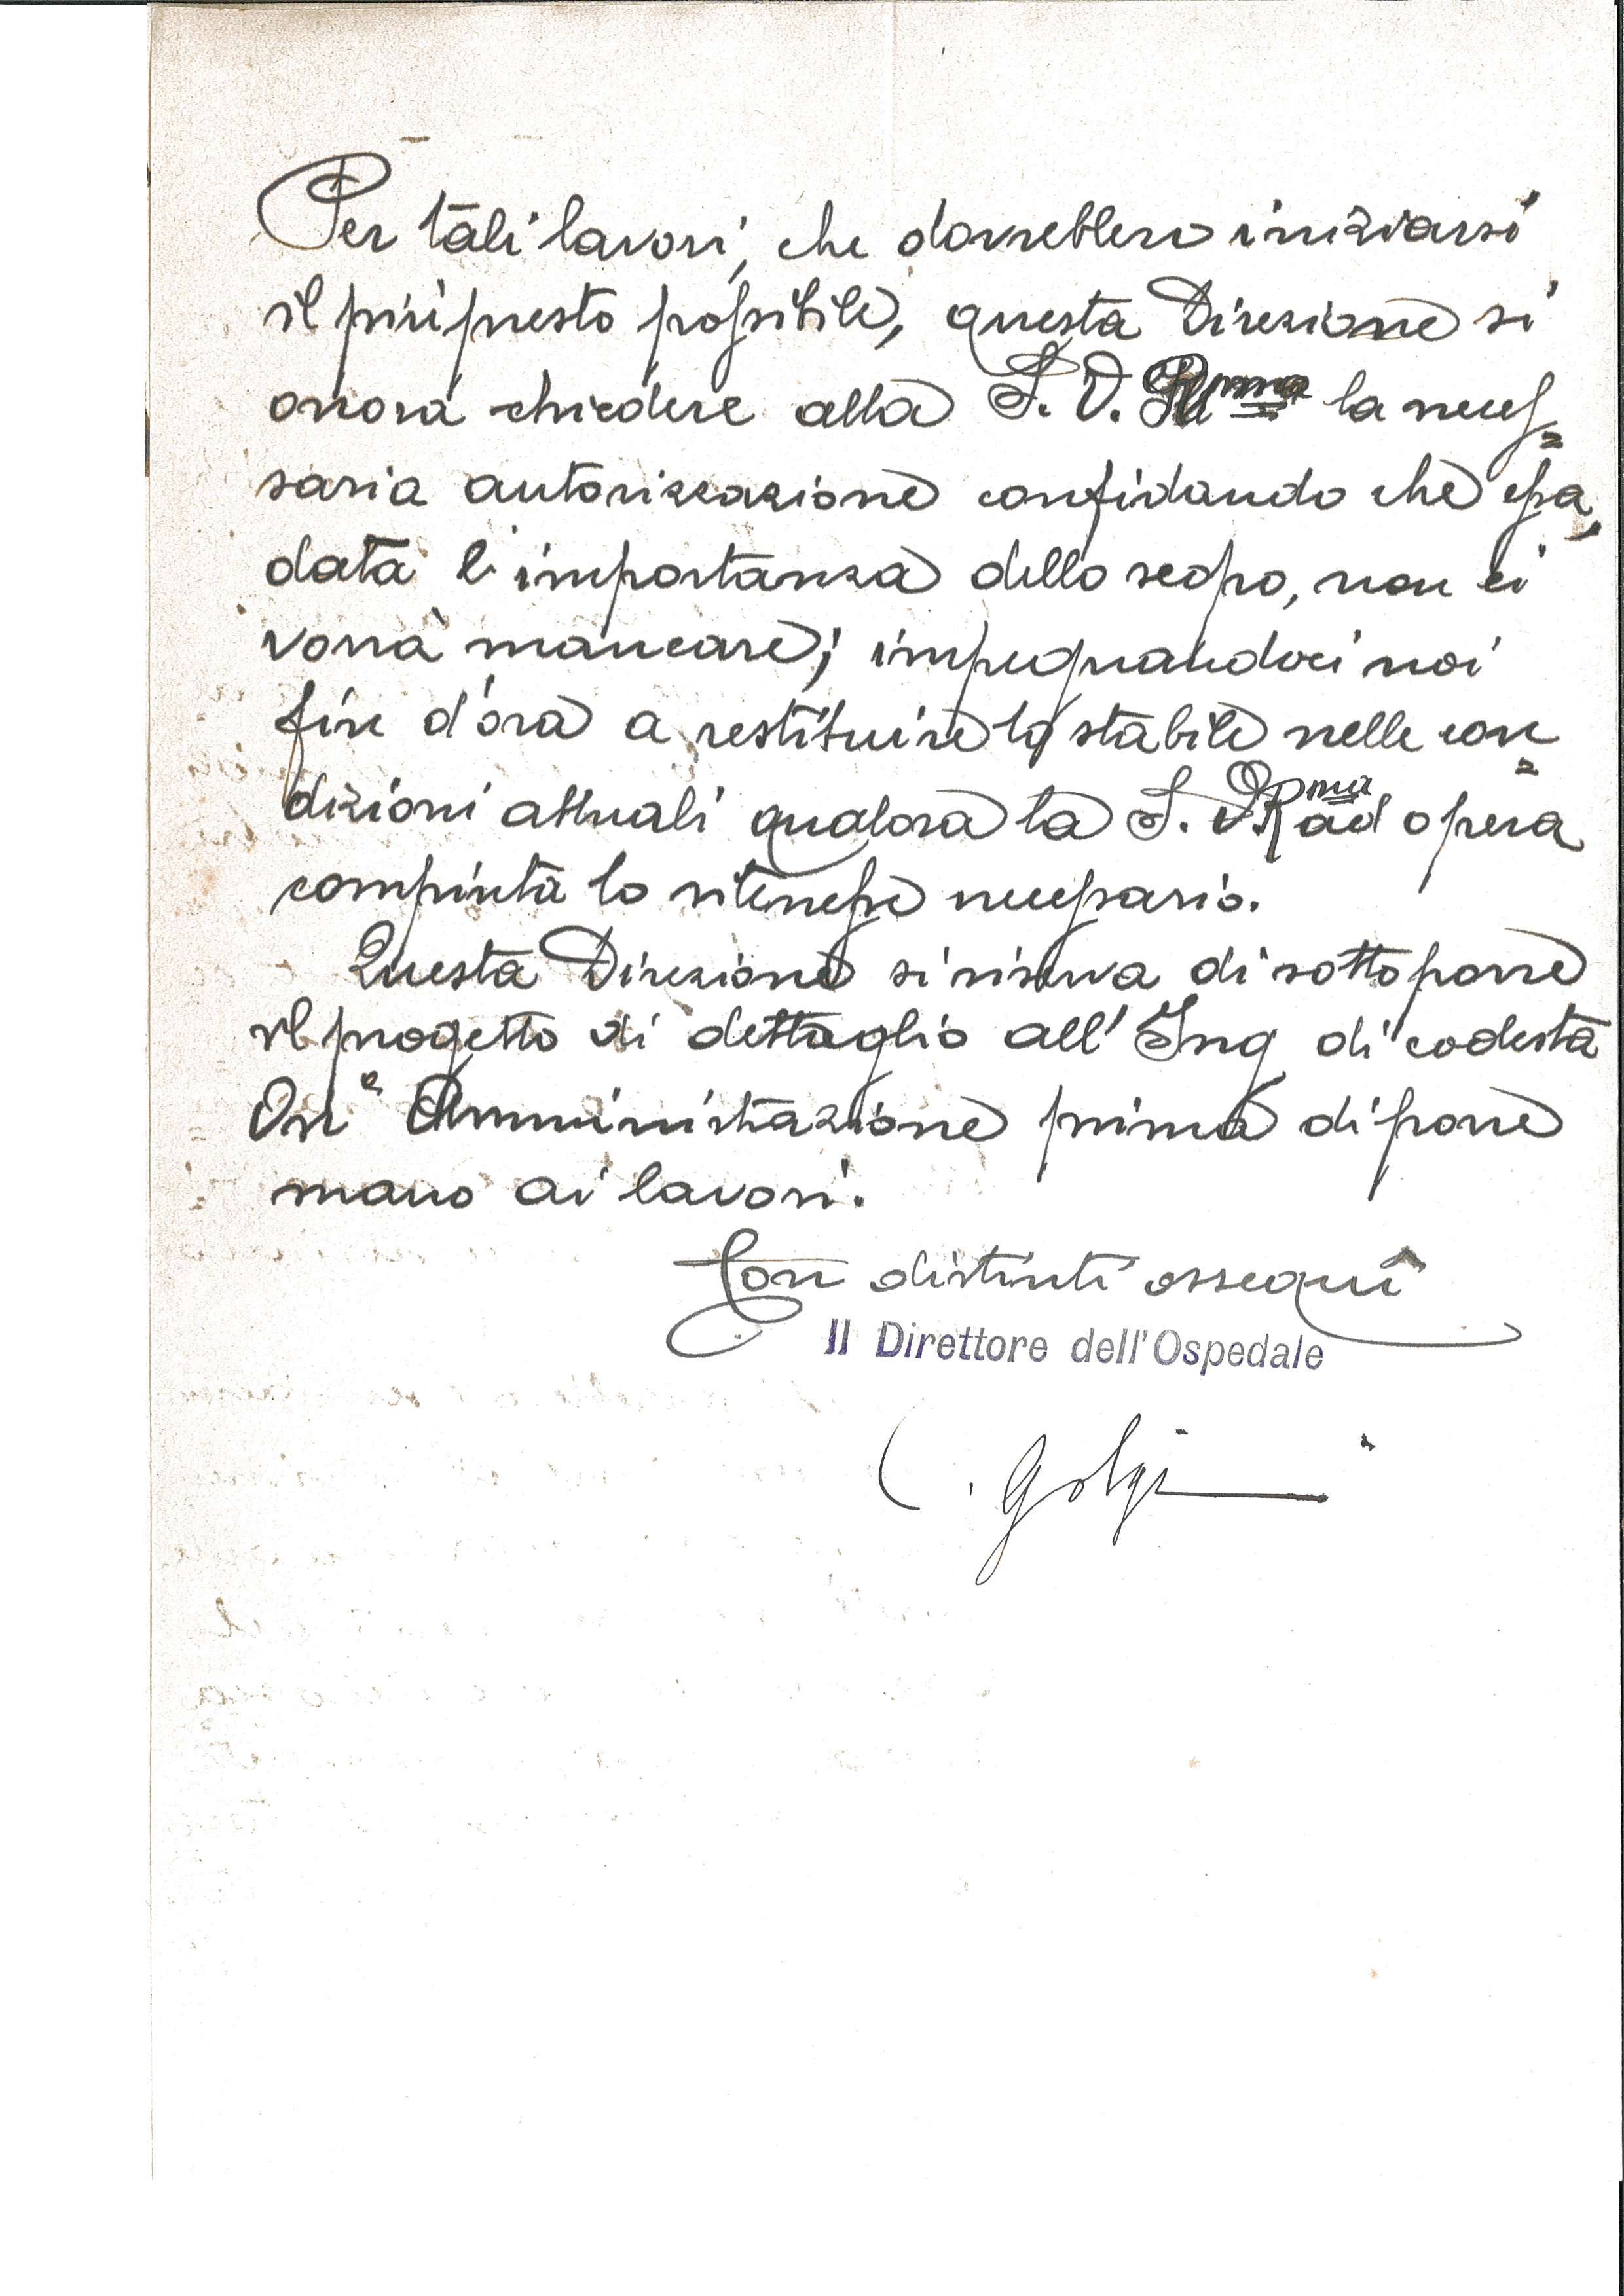 Per tali lavori, che dovrebbero iniziarsi
il più presto possibile, questa Direzione si
onora chiedere alla S. V. R^ma la neces=
saria autorizzazione confidando che essa,
data l'importanza dello scopo, non ci
vorrà mancare; impegnandoci noi
fin d'ora a restituire lo stabile nelle con
=
dizioni attuali qualora la S. V. R^ma ad opera
compiuta lo ritenesse necessario.
Questa Direzione si riserva di sottoporre
il progetto di dettaglio all' Ing di codesta
On^e Amministrazione prima di porre
mano ai lavori.
Con distinti ossequi
Il Direttore dell'Ospedale
C. Golgi